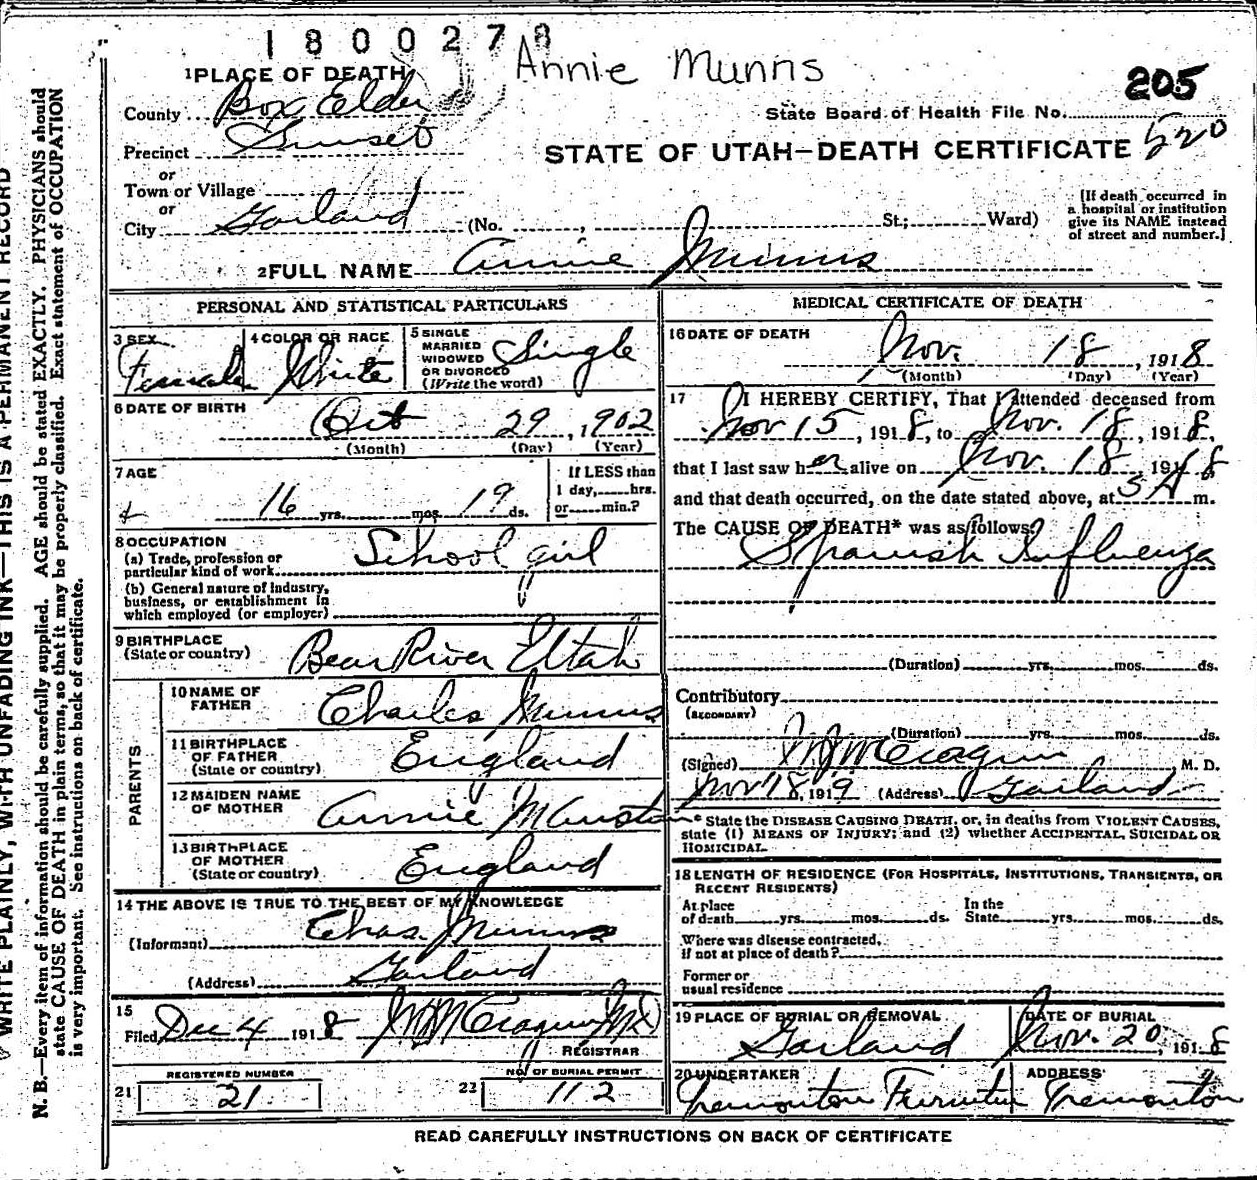 1800278
Annie Munns
205
State Board of Health File No.
520
STATE OF UTAH—DEATH CERTIFICATE
1 PLACE OF DEATH
County Box Elder
Precinct Sunset
or
Town or Village
or
City Garland (No. , St.; Ward)
[If death occurred in
a hospital or institution
give its NAME instead
of street and number.]
2 FULL NAME Annie Munns
PERSONAL AND STATISTICAL PARTICULARS
3 SEX Female
4 COLOR OR RACE White
5 SINGLE
MARRIED
WIDOWED
OR DIVORCED
(Write the word) Single
6 DATE OF BIRTH
Oct 29, 1902
(Month) (Day) (Year)
7 AGE
16 yrs. mos. 19 ds.
If LESS than
1 day, hrs.
or min.?
8 OCCUPATION
(a) Trade, profession or
particular kind of work School girl
(b) General nature of industry,
business, or establishment in
which employed (or employer)
9 BIRTHPLACE
(State or country) Bear River Utah
PARENTS
10 NAME OF
FATHER Charles Munns
11 BIRTHPLACE
OF FATHER
(State or country) England
12 MAIDEN NAME
OF MOTHER Annie
13 BIRTHPLACE
OF MOTHER
(State or country) England
14 THE ABOVE IS TRUE TO THE BEST OF MY KNOWLEDGE
(Informant) Chas. Munns
(Address) Garland
15
Filed Dec 4 1918
REGISTRAR
REGISTERED NUMBER
21 21
NO. OF BURIAL PERMIT
22 112
MEDICAL CERTIFICATE OF DEATH
16 DATE OF DEATH
Nov. 18, 1918
(Month) (Day) (Year)
17 I HEREBY CERTIFY, That I attended deceased from
Nov 15, 1918, to Nov. 18, 1918,
that I last saw her alive on Nov. 18 1918
and that death occurred, on the date stated above, at 5 A m.
The CAUSE OF DEATH* was as follows:
Spanish Influenza
(Duration) yrs. mos. ds.
Contributory
(SECONDARY)
(Duration) yrs. mos. ds.
(Signed) M. D.
Nov 18, 1919 (Address) Garland
* State the DISEASE CAUSING DEATH, or, in deaths from VIOLENT CAUSES,
state (1) MEANS OF INJURY; and (2) whether ACCIDENTAL, SUICIDAL OR
HOMICIDAL.
18 LENGTH OF RESIDENCE (FOR HOSPITALS, INSTITUTIONS, TRANSIENTS, OR
RECENT RESIDENTS)
At place
of death yrs. mos. ds.
In the
State yrs. mos. ds.
Where was disease contracted,
if not at place of death?
Former or
usual residence
19 PLACE OF BURIAL OR REMOVAL
Garland
DATE OF BURIAL
Nov. 20, 1918
20 UNDERTAKER
Tremonton
ADDRESS
Tremonton
READ CAREFULLY INSTRUCTIONS ON BACK OF CERTIFICATE
WRITE PLAINLY, WITH UNFADING INK—THIS IS A PERMANENT RECORD
N. B.—Every item of information should be carefully supplied. AGE should be stated EXACTLY. PHYSICIANS should
state CAUSE OF DEATH in plain terms, so that it may be properly classified. Exact statement of OCCUPATION
is very important. See instructions on back of certificate.